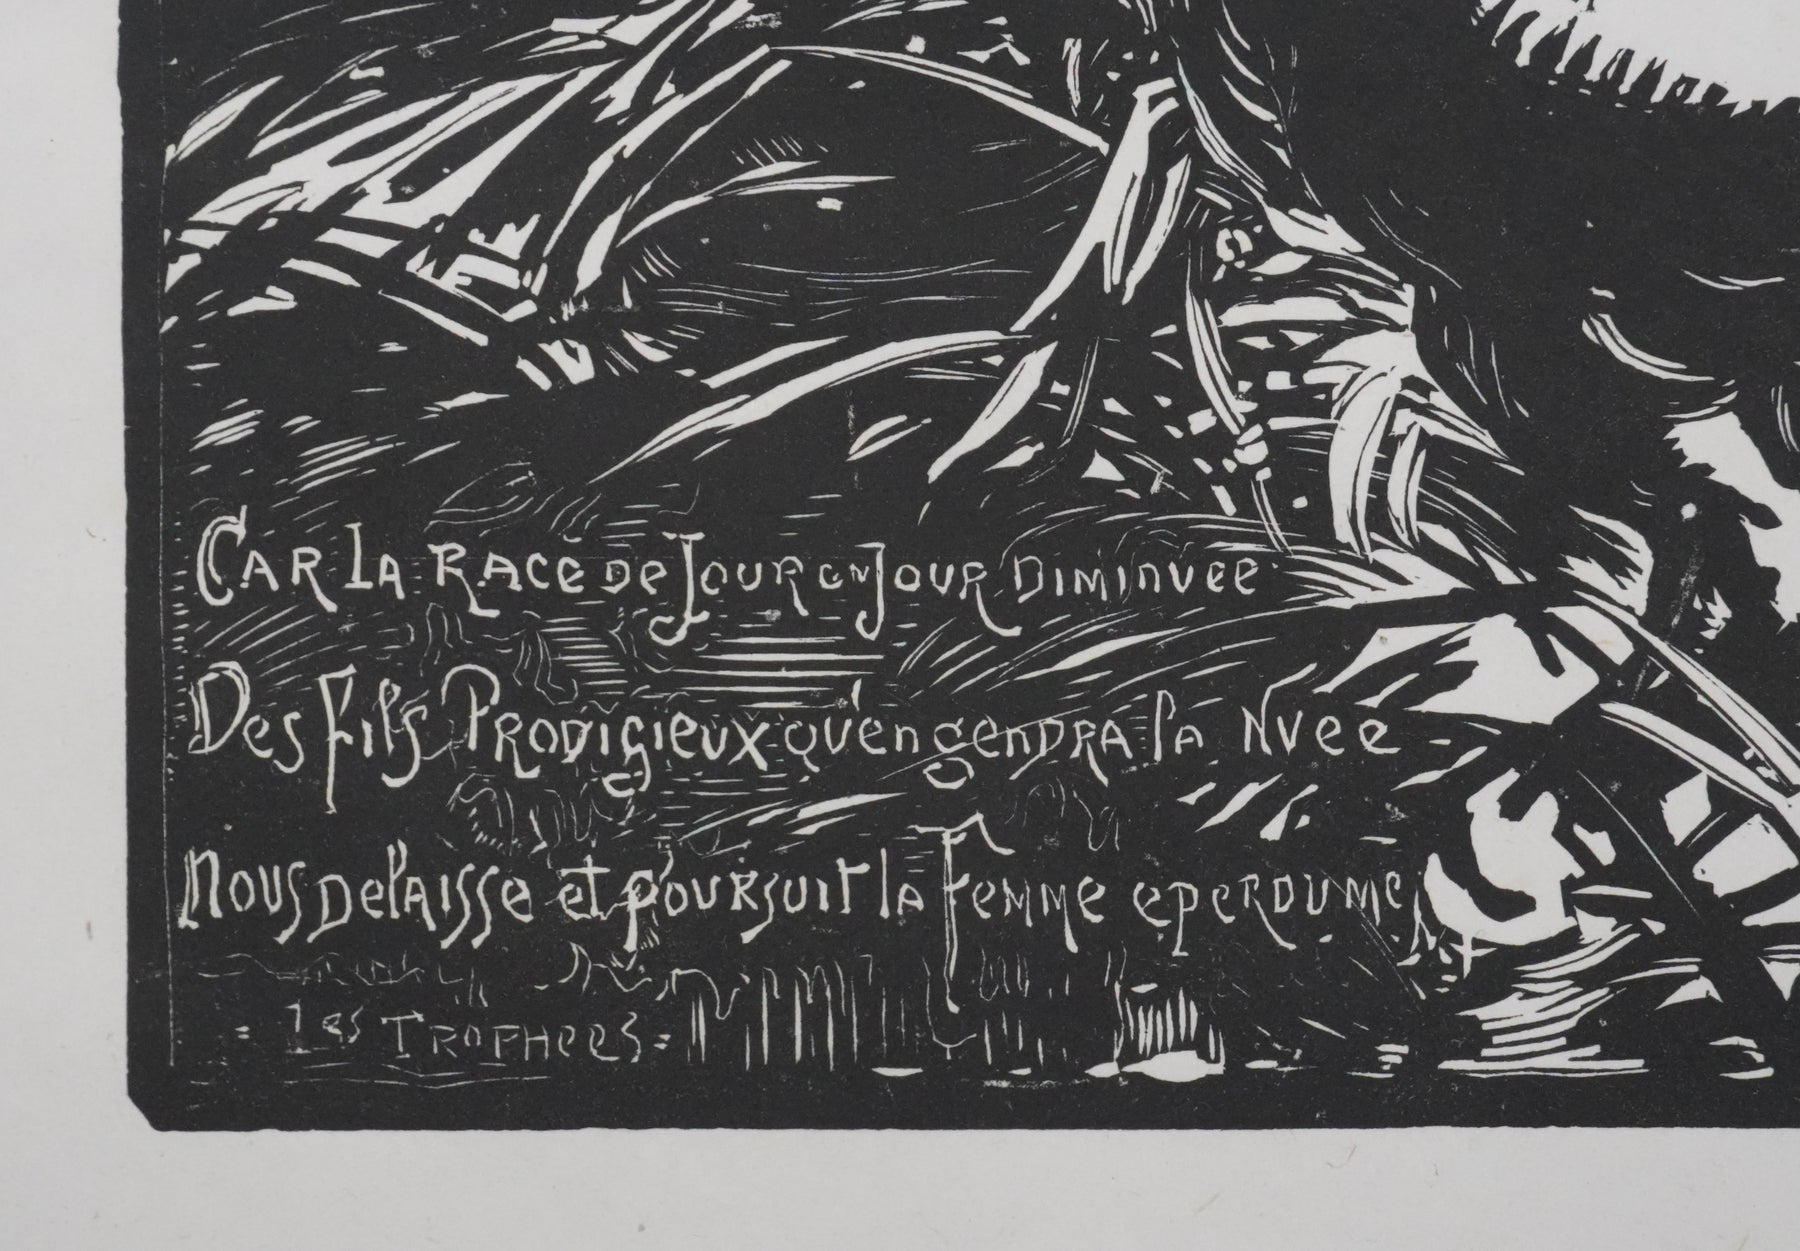 CAR LA RACE DE JOUR EN JOUR DIMINUEE
DES FILS PRODIGIEUX QU'ENGENDRA LA NUEE
NOUS DELAISSE ET POURSUIT LA FEMME EPERDUMC
= LES TROPHEES =